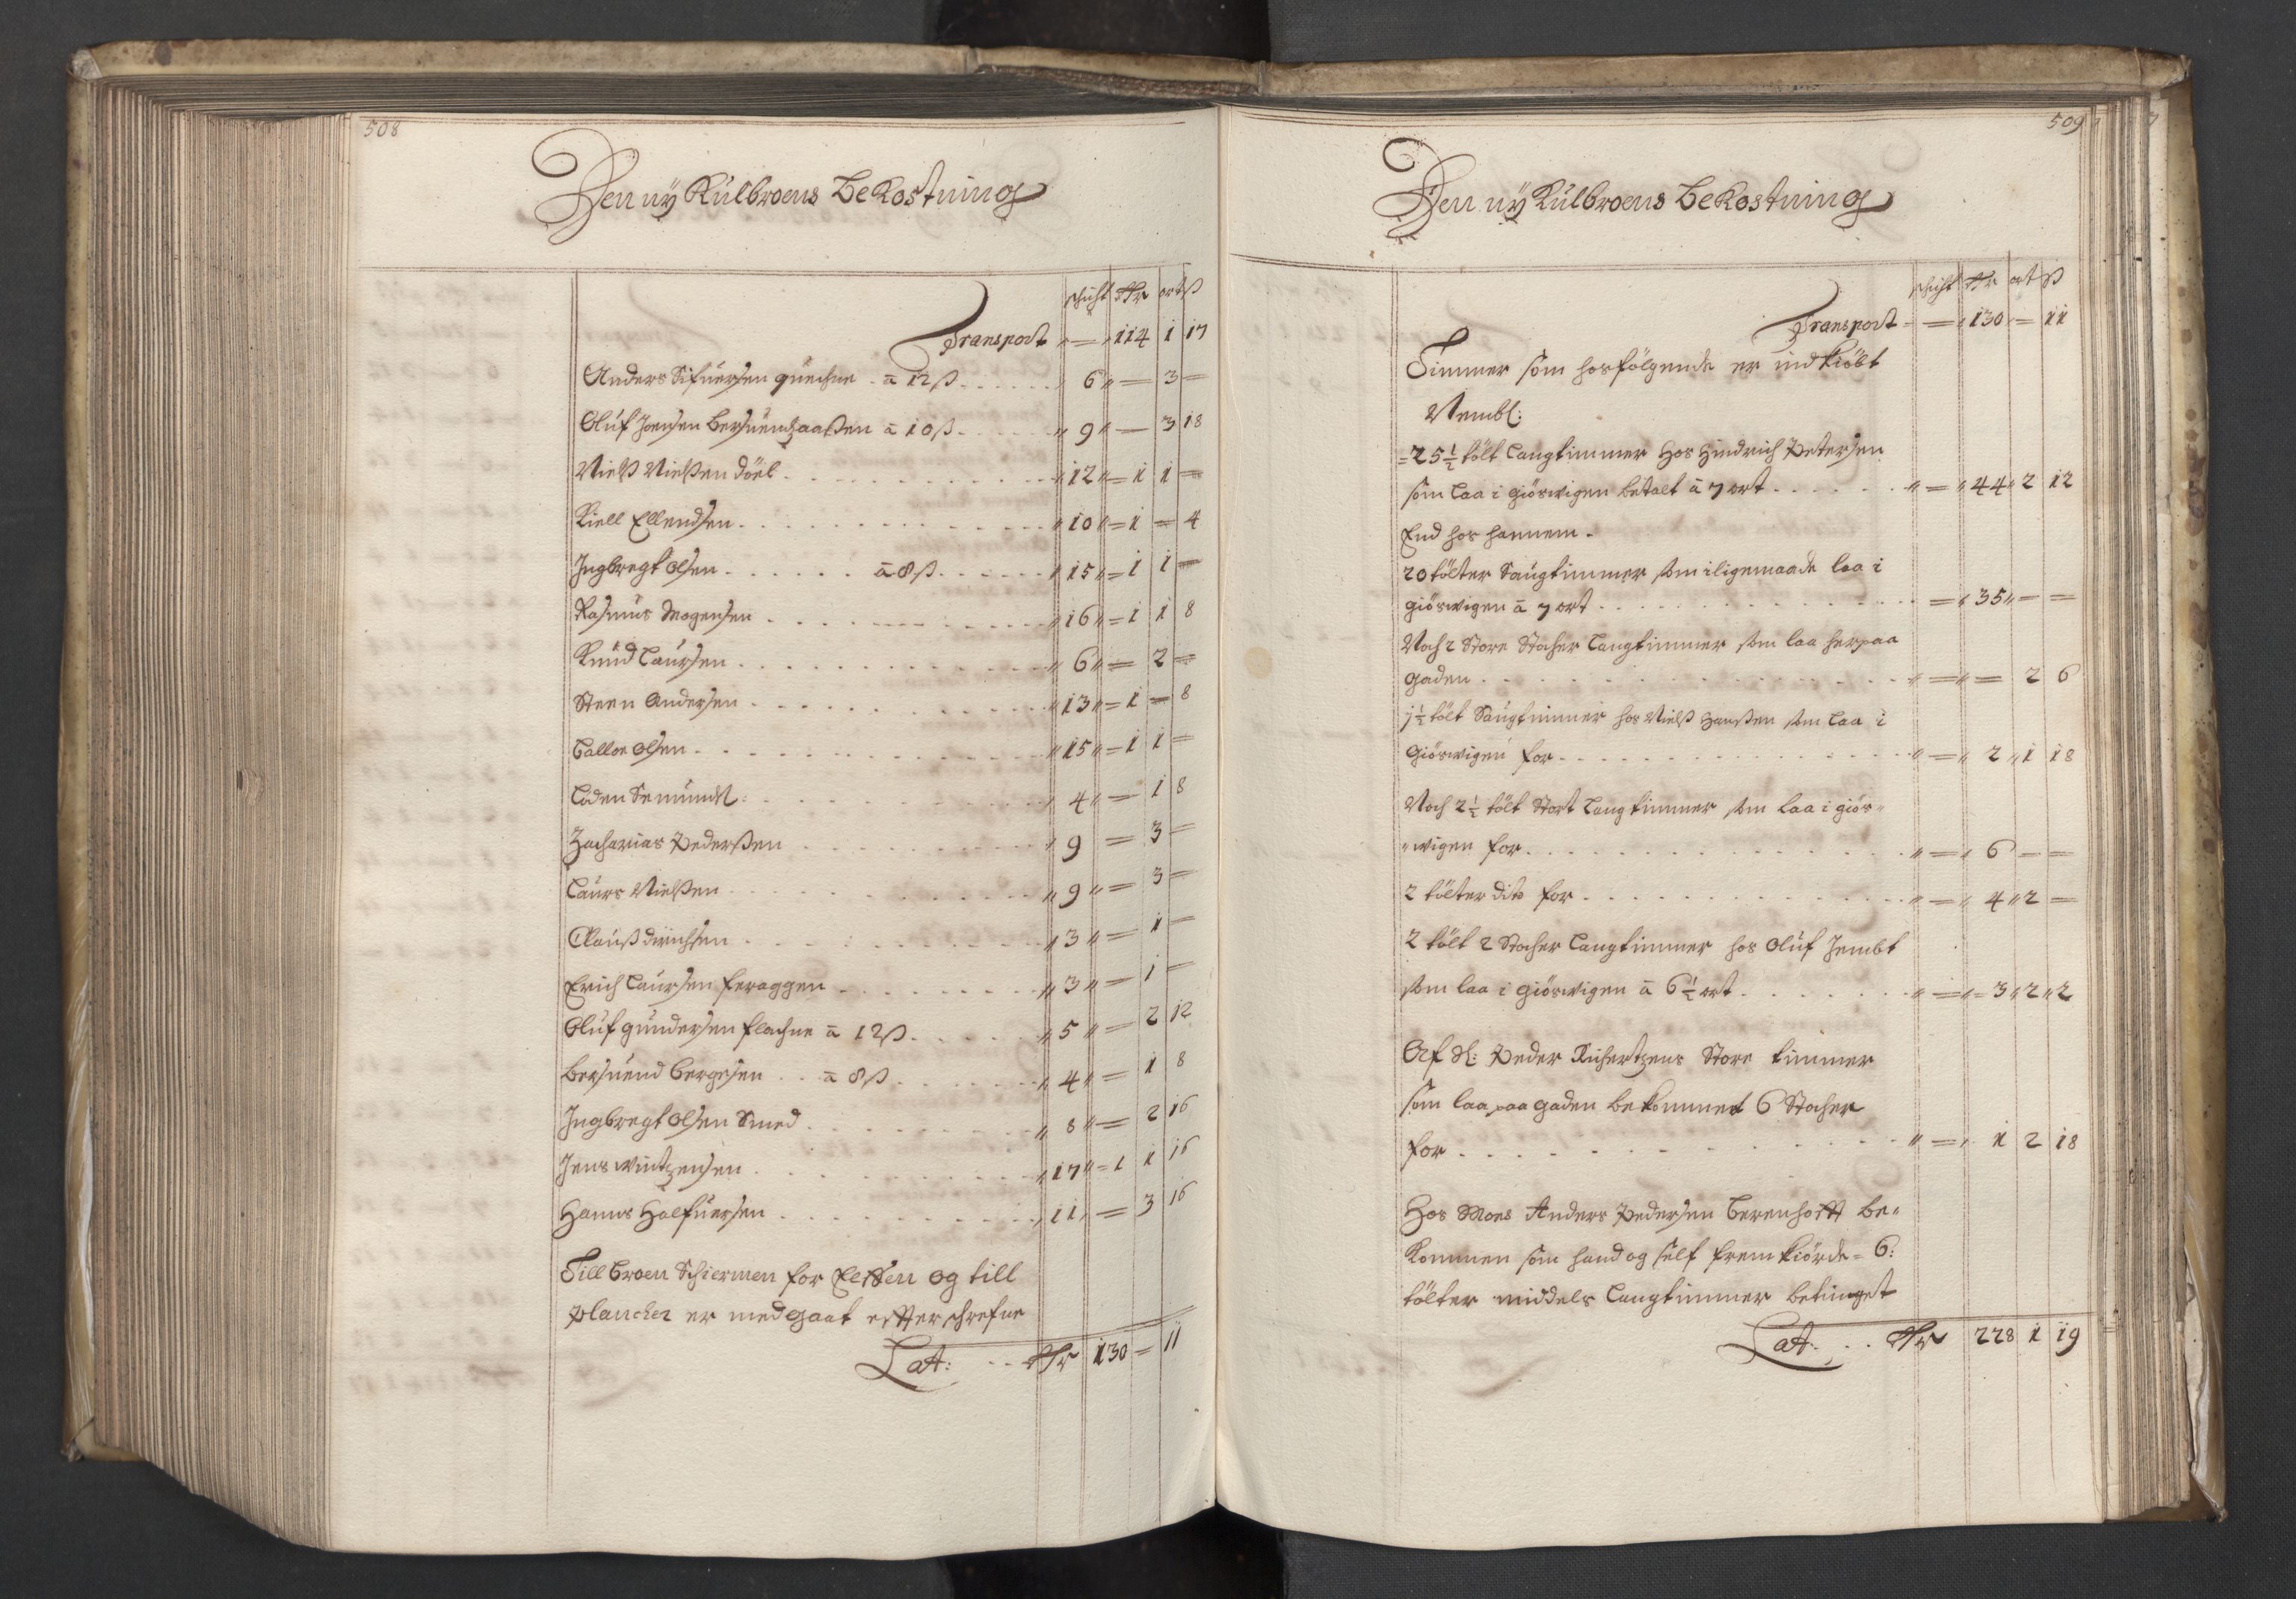 508
Den nÿ Kulbroens Bekostning
schicht Rdr ort ß
Transport " = " 114 1 17
Anders Sifuersen quechne . a 12 ß . . . . " 6 " — 3 —
Oluf Joensen Bersuendhaaßen a 10 ß . . . " 9 " — 3 18
Nielß Nielßen döel . . . . " 12 " = 1 1 —
Kiell Ellendsen . . . . " 10 " = 1 — 4
Ingbregt Olsen . . . . a 8 ß . . . . " 15 " = 1 1 —
Rasmus Mogensen . . . . " 16 " = 1 1 8
Knud Laursen . . . . " 6 " = 2 —
Steen Andersen . . . . " 13 " = 1 — 8
Balloe Olsen . . . . " 15 " = 1 1 —
Loden Semundß: . . . . " 4 " — 1 8
Zacharias Pederßen . . . . " 9 — 3 —
Laurs Nielßen . . . . " 9 " — 3 —
Clauß dirichsen . . . . " 3 " — 1 —
Erich Laursen feraggen . . . . " 3 " — 1 —
Oluf gundersen flachne a 12 ß . . . . " 5 " — 2 12
Bersuend Bergesen . . a 8 ß . . . . " 4 " — 1 8
Ingbregt Olsen Smed . . . . " 8 " — 2 16
Jens Wintzensen . . . . " 17 " = 1 1 16
Hanns Halfuersen . . . . " 11 " — 3 16
Till broen Schiermen for Elffuen og till
Plancher er medgaat effterschrefne
Lat: . . Rdr 130 = 11
509
Den nÿ Kulbroens Bekostning
schicht Rdr ort ß
Transport = " 130 " = 11
Timmer som hosfölgende er indkiöbt
Nembl:
= 25 ½ tölt Langtimmer Hos Hindrich Petersen
som Laa i giöswigen betalt a 7 ort . . . . " = " 44 " 2 12
End hos hannem .
20 tölter Saugtimmer som iligemaade laa i
giöswigen a 7 ort . . . . = " 35 " — —
Noch 2 Store Stocher Langtimmer som laa her paa
gaden . . . . " = " = 2 6
1 ½ tölt Saugtimmer hos Nielß Hanßen som Laa i
Giöswigen for . . . . " = " 2 " 1 18
Noch 2 ½ tölt Stort Langtimmer som laa i giös "
" wigen for . . . . " = " 6 — —
2 tölter dito for . . . . " = " 4 " 2 —
2 tölt 2 Stocher Langtimmer hos Oluf Jembt
som laa i giöswigen a 6 ½ ort . . . . " = " = 3 " 2 " 2
Af Sl: Peder Richertzens Store timmer
som laa paa gaden bekommet 6 Stocher
for . . . . " = " 1 2 18
Hos Mons Anders Pedersen Berenhoff be "
kommen som hand og self fremkiörde = 6:
tölter middels Langtimmer betinget
Lat: . . Rdr 228 1 19